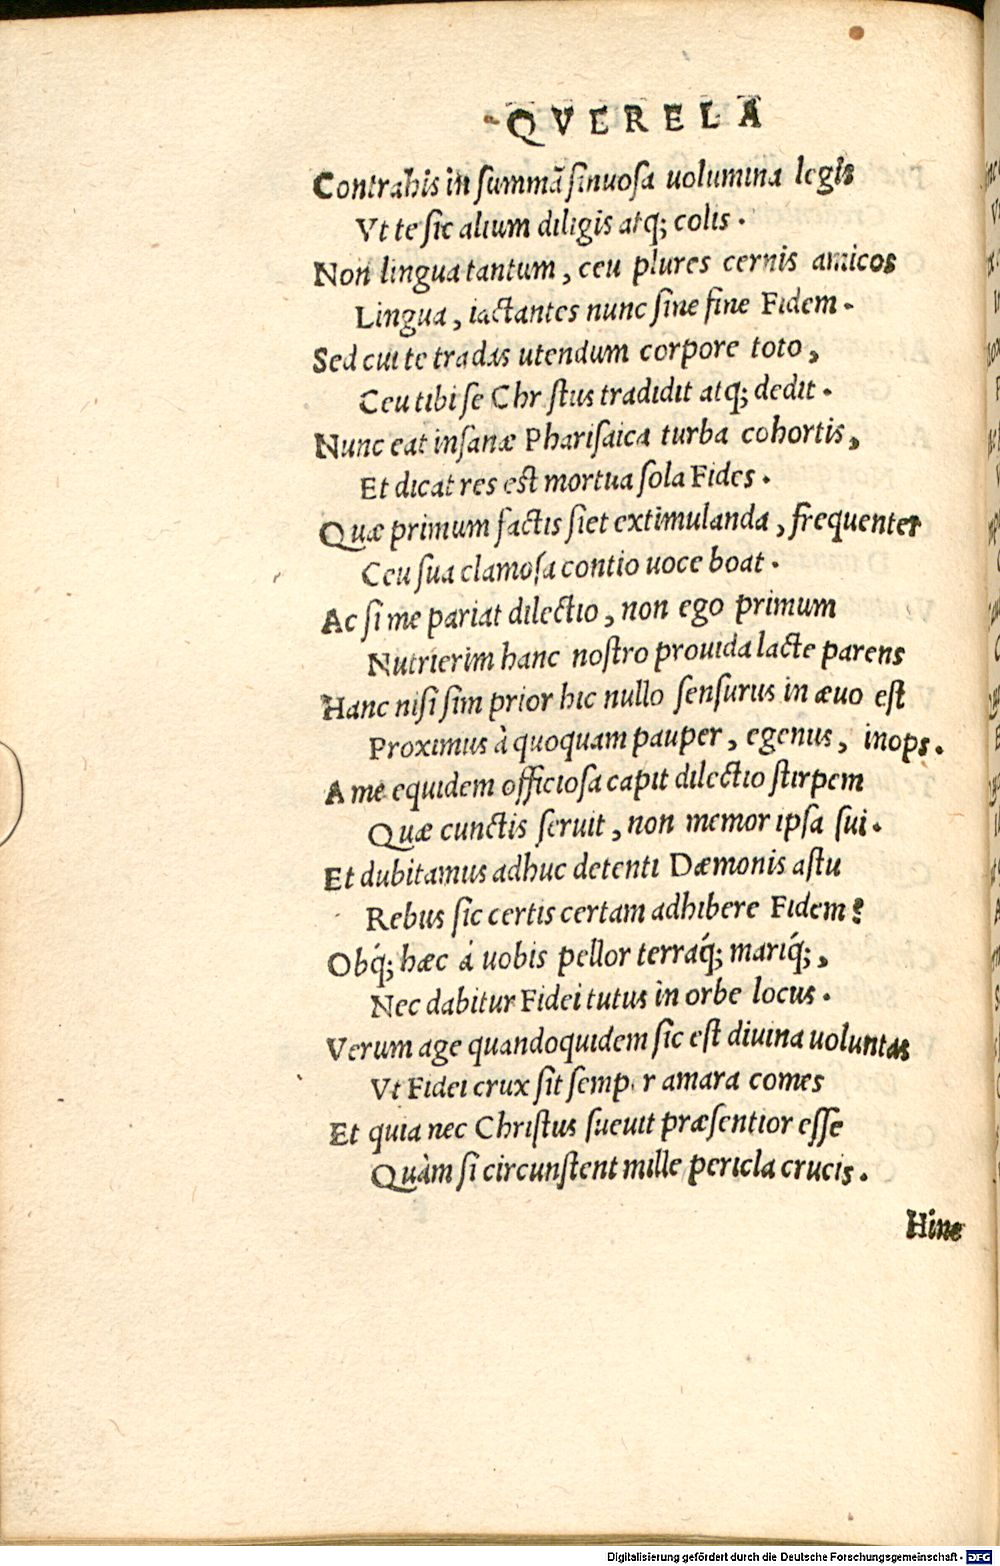 QVERELA
Contrahis in ſummã ſinuoſa uolumina legis
Vt te ſic alium diligis atq; colis.
Non lingua tantum, ceu plures cernis amicos
Lingua, iactantes nunc ſine fine Fidem.
Sed cui te tradas utendum corpore toto,
Ceu tibi ſe Chr ſtus tradidit atq; dedit.
Nunc eat inſanæ Phariſaica turba cohortis,
Et dicat res eſt mortua ſola Fides.
Quæ primum factis ſiet extimulanda, frequenter
Ceu ſua clamoſa contio uoce boat.
Ac ſi me pariat dilectio, non ego primum
Nutrierim hanc noſtro prouida lacte parens
Hanc niſi ſim prior hic nullo ſenſurus in æuo eſt
Proximus à quoquam pauper, egenus, inops.
A me equidem officioſa capit dilectio ſtirpem
Quæ cunctis ſeruit, non memor ipſa ſui.
Et dubitamus adhuc detenti Dæmonis aſtu
Rebus ſic certis certam adhibere Fidem?
Obq́; hæc á uobis pellor terraq́; mariq́;,
Nec dabitur Fidei tutus in orbe locus.
Verum age quandoquidem ſic eſt diuina uoluntas
Vt Fidei crux ſit ſemp r amara comes
Et quia nec Chriſtus ſueuit præſentior eſſe
Quàm ſi circunſtent mille pericla crucis.
Hinc
Digitalisierung gefördert durch die Deutsche Forschungsgemeinschaft - DFG